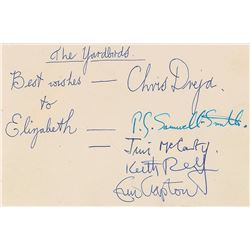 The Yardbirds
Best wishes — Chris Dreja.
to
Elizabeth — P.G. Samwell-Smith.
Jim McCarty
Keith Relf
Eric Clapton